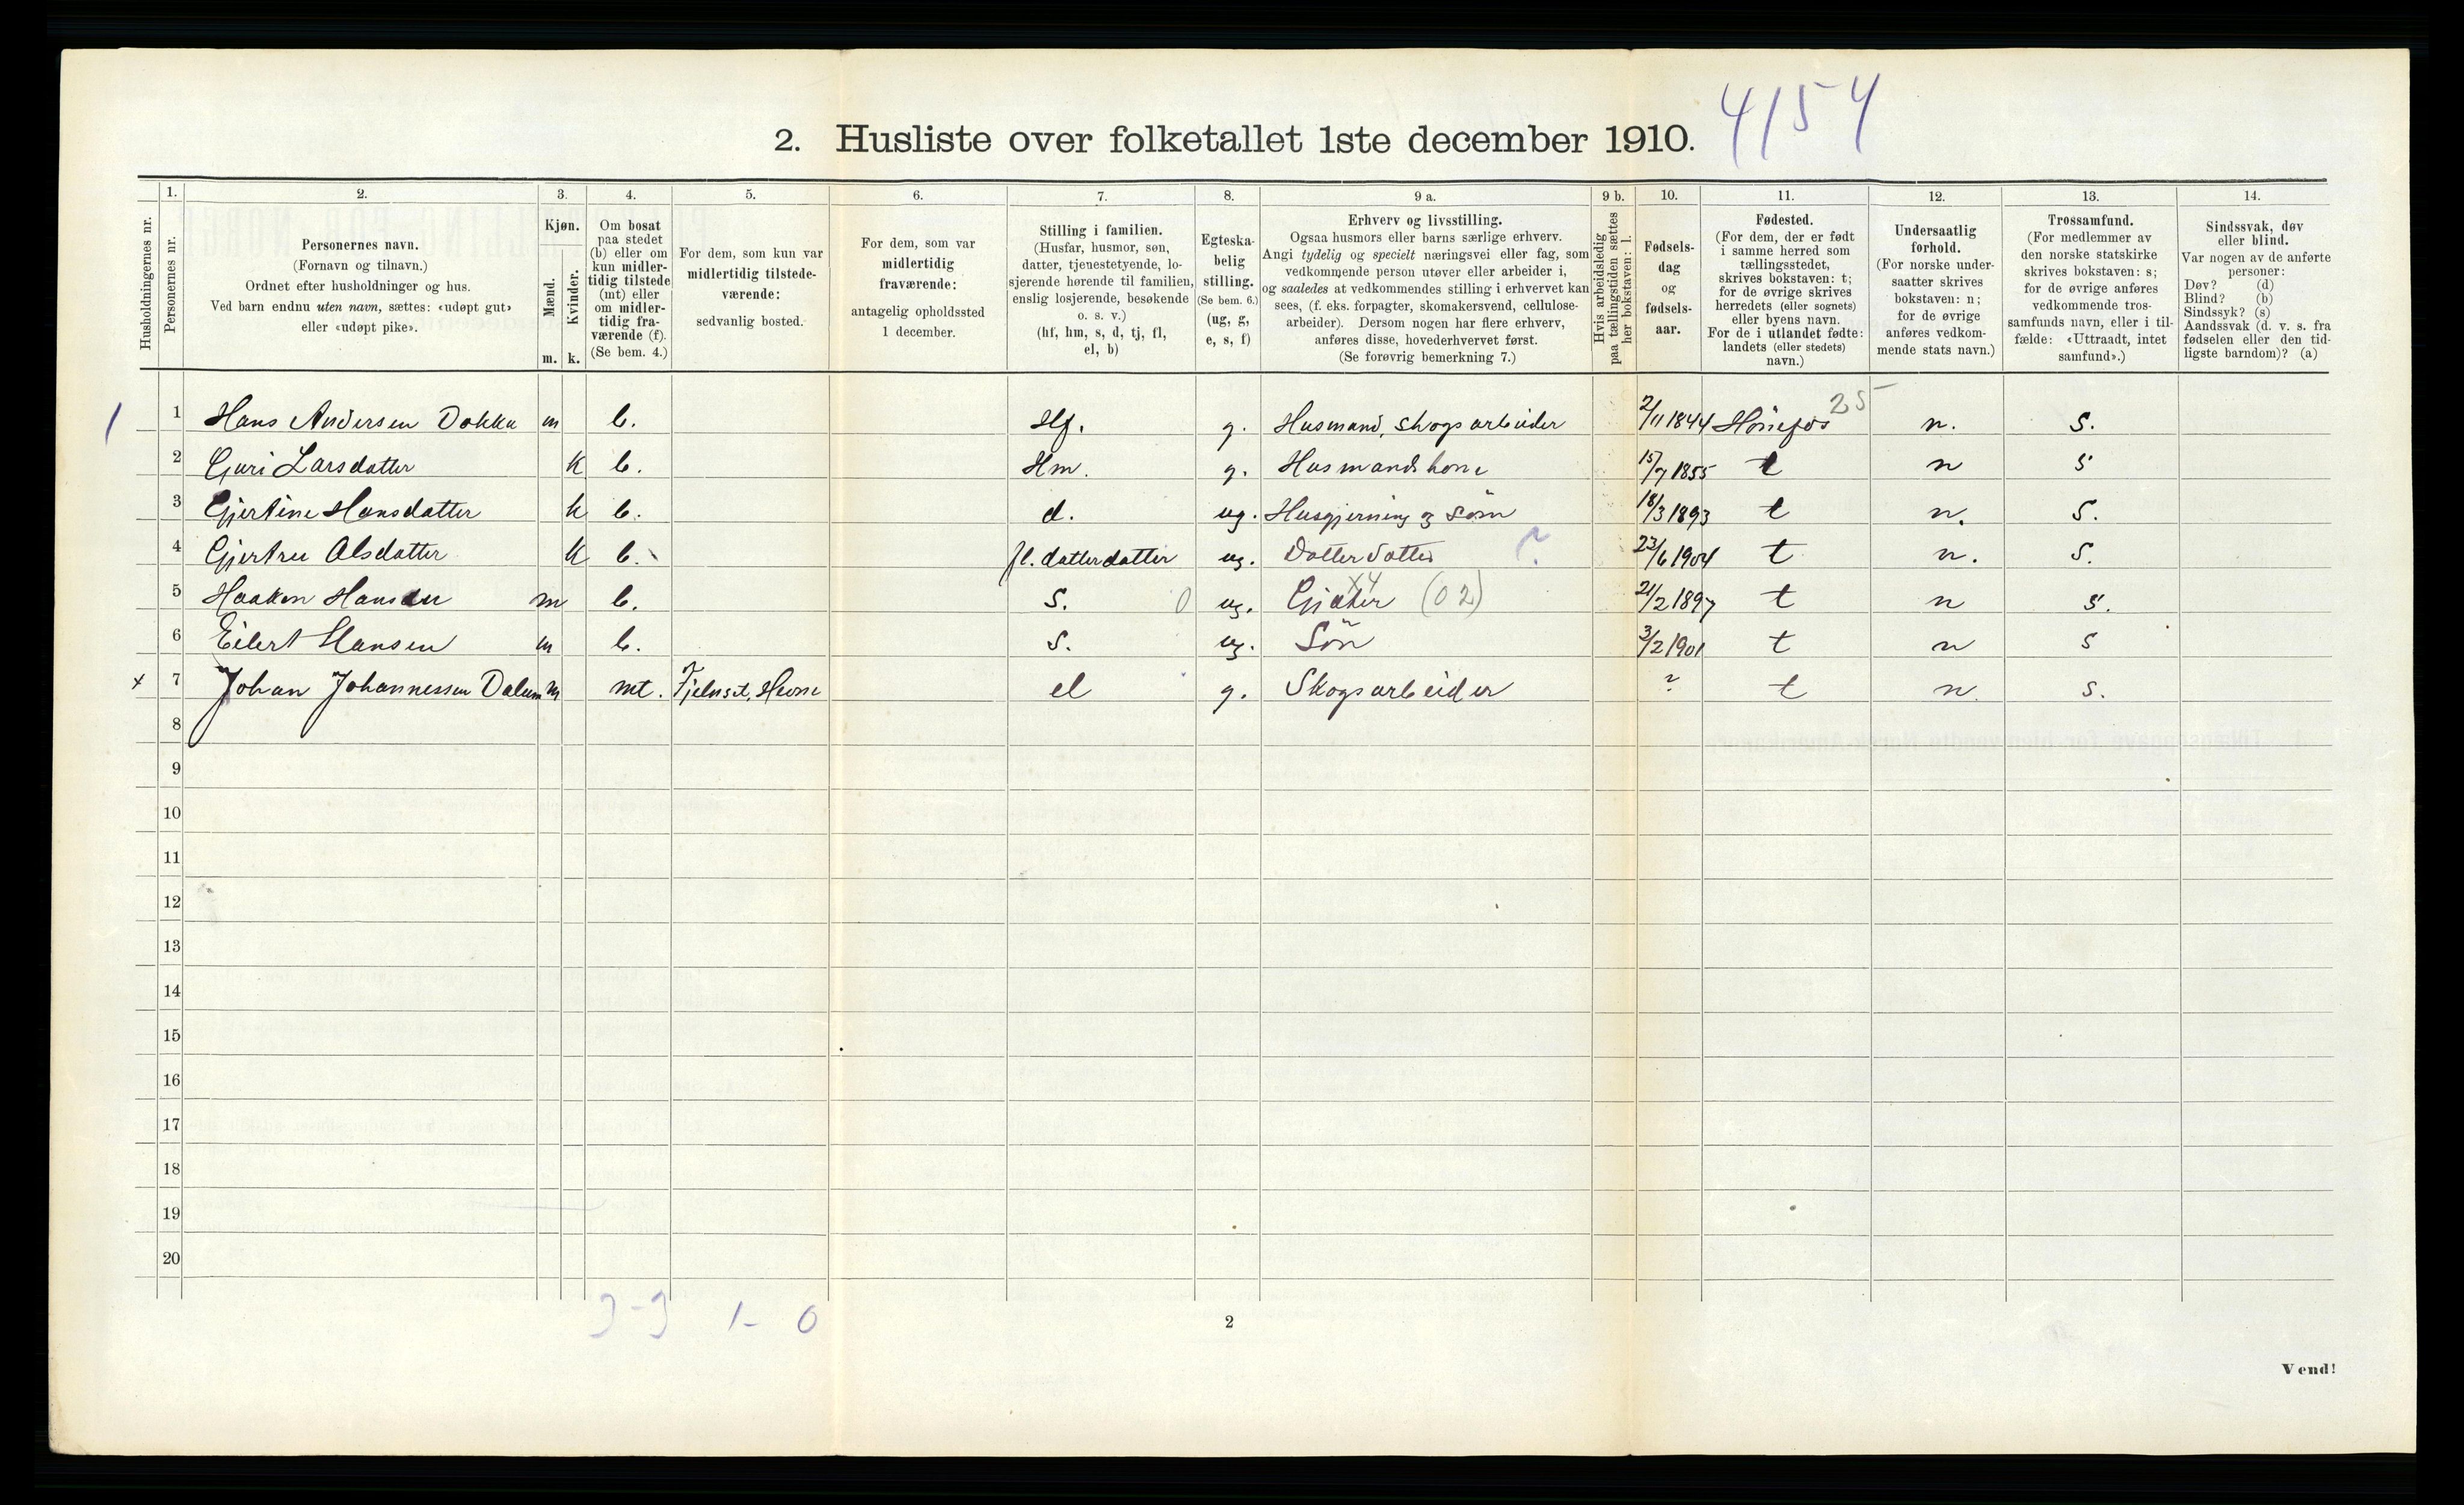 2. Husliste over folketallet 1ste december 1910. 4154
Husholdningernes nr.
1.
Personernes nr.
2.
Personernes navn.
(Fornavn og tilnavn.)
Ordnet efter husholdninger og hus.
Ved barn endnu uten navn, sættes: «udøpt gut»
eller «udøpt pike».
3.
Kjøn.
Mænd.
Kvinder.
m. k.
4.
Om bosat
paa stedet
(b) eller om
kun midler-
tidig tilstede
(mt) eller
om midler-
tidig fra-
værende (f).
(Se bem. 4.)
5.
For dem, som kun var
midlertidig tilstede-
værende:
sedvanlig bosted.
6.
For dem, som var
midlertidig
fraværende:
antagelig opholdssted
1 december.
7.
Stilling i familien.
(Husfar, husmor, søn,
datter, tjenestetyende, lo-
sjerende hørende til familien,
enslig losjerende, besøkende
o. s. v.)
(hf, hm, s, d, tj, fl,
el, b)
8.
Egteska-
belig
stilling.
(Se bem. 6.)
(ug, g,
e, s, f)
9 a.
Erhverv og livsstilling.
Ogsaa husmors eller barns særlige erhverv.
Angi tydelig og specielt næringsvei eller fag, som
vedkommende person utøver eller arbeider i,
og saaledes at vedkommendes stilling i erhvervet kan
sees, (f. eks. forpagter, skomakersvend, cellulose-
arbeider). Dersom nogen har flere erhverv,
anføres disse, hovederhvervet først.
(Se forøvrig bemerkning 7.)
9 b.
Hvis arbeidsledig
paa tællingstiden sættes
her bokstaven: l.
10.
Fødsels-
dag
og
fødsels-
aar.
11.
Fødested.
(For dem, der er født
i samme herred som
tællingsstedet,
skrives bokstaven: t;
for de øvrige skrives
herredets (eller sognets)
eller byens navn.
For de i utlandet fødte:
landets (eller stedets)
navn.)
12.
Undersaatlig
forhold.
(For norske under-
saatter skrives
bokstaven: n;
for de øvrige
anføres vedkom-
mende stats navn.)
13.
Trossamfund.
(For medlemmer av
den norske statskirke
skrives bokstaven: s;
for de øvrige anføres
vedkommende tros-
samfunds navn, eller i til-
fælde: «Uttraadt, intet
samfund».)
14.
Sindssvak, døv
eller blind.
Var nogen av de anførte
personer:
Døv? (d)
Blind? (b)
Sindssyk? (s)
Aandssvak (d. v. s. fra
fødselen eller den tid-
ligste barndom)? (a)
25
1 1 Hans Andersen Dokka m b. Hf. g. Husmand, skogsarbeider 2/11 1844 Hönefos n. s.
2 Guri Larsdatter k b. Hm. g. Husmandskone 15/7 1855 t n s
3 Gjertine Hansdatter k b. d. ug. Husgjerning og söm 18/3 1893 t n. s.
4 Gjertru Olsdatter k b. fl. datterdatter ug. Datterdatter ? 23/6 1904 t n. s.
5 Haakon Hansen m b. s. 0 ug. Gjæter X4 (02) 21/2 1897 t n s.
6 Eilert Hansen m b. s. ug. Sön 3/2 1901 t n s
x 7 Johan Johannessen Dalum m mt. Fjelnset, Hevne el g. Skogsarbeider ? t n. s.
8
9
10
11
12
13
14
15
16
17
18
19
20
3-3 1-0
2
Vend!